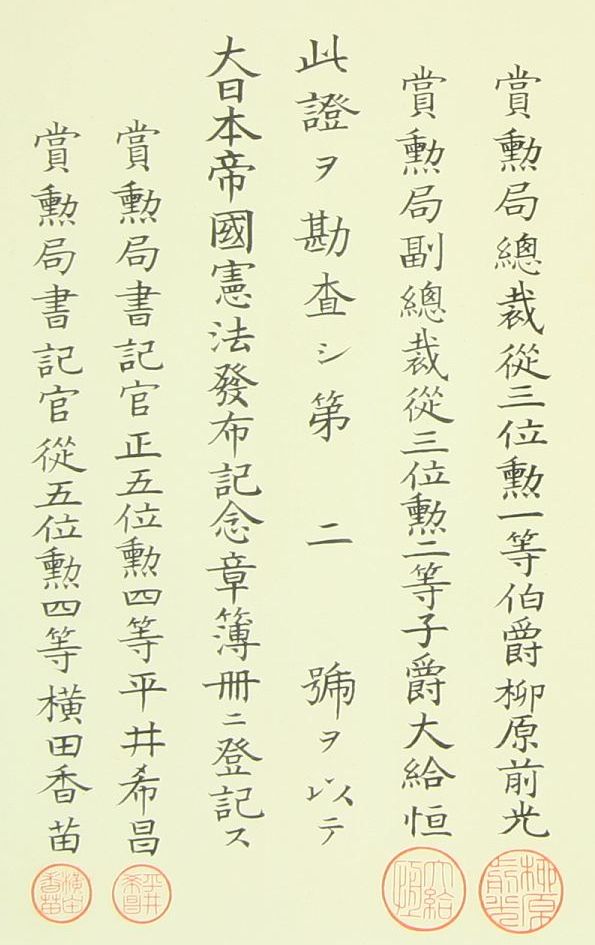 賞勲局總裁從三位勲一等伯爵柳原前光
賞勲局副總裁從三位勲二等子爵大給恒
此證ヲ勘査シ第二號ヲ以テ
大日本帝國憲法發布記念章簿册ニ登記ス
賞勲局書記官正五位勲四等平井希昌
賞勲局書記官從五位勲四等橫田香苗
柳原前光
大給恒
平井希昌
橫田香苗